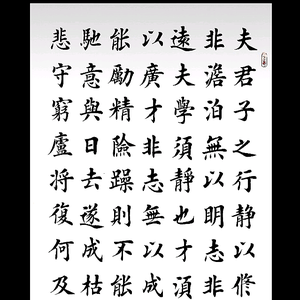 夫君子之行静以修
非澹泊無以明志非
遠夫學須静也才須
以廣才非志無以成
能勵精險躁則不能
馳意與日去遂成枯
悲守窮廬将復何及